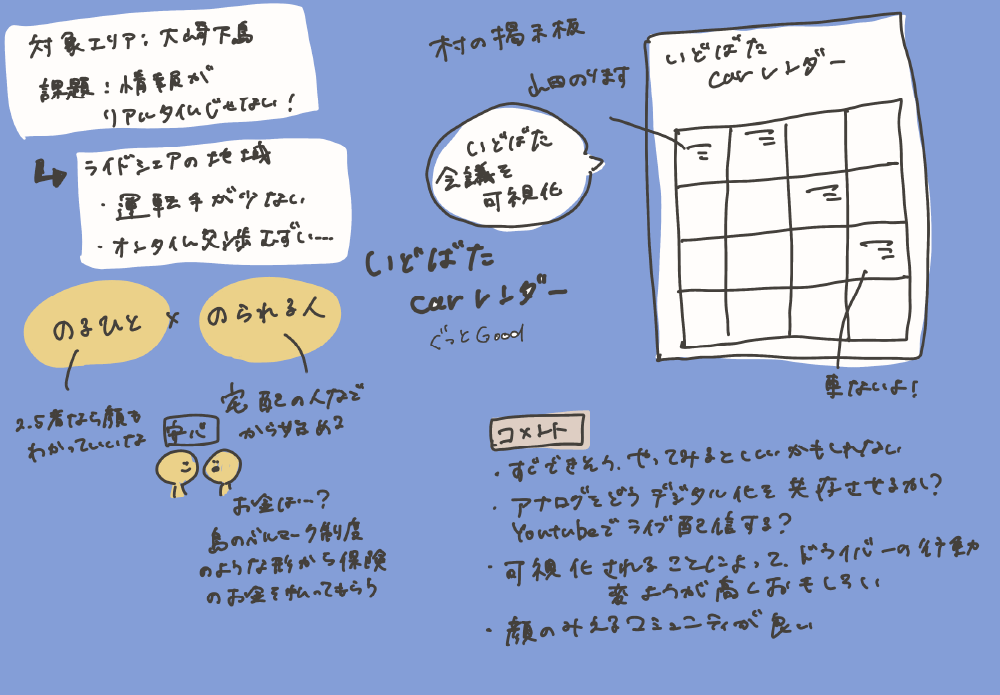 対象エリア：大崎下島
課題：情報が
リアルタイムじゃない！
ライドシェアの地域
・運転手が少ない
・オンタイム交渉むずい……
のるひと × のられる人
2.5者なら顔も
わかっていいな
宅配の人などから
から始める？
安心
お金は…？
島のベルマーク制度
のような形から保険
のお金を払ってもらう
村の掲示板
山田のります
いどばた
会議を
可視化
いどばた
carレンダー
ぐっとGood
いどばた
carレンダー
車ないよ！
コメント
・すぐできそう、やってみるといいかもしれない
・アナログをどうデジタル化を共存させるか？
Youtubeでライブ配信する？
・可視化されることによって、ドライバーの行動
変ようが高くおもしろい
・顔のみえるコミュニティが良い